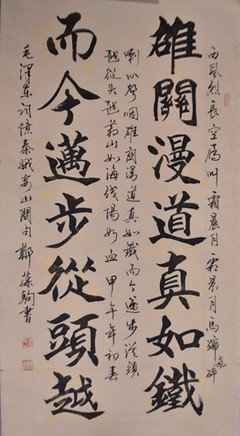 西風烈長空雁叫霜晨月霜晨月馬蹄聲碎
雄關漫道真如鐵
喇叭聲咽雄關漫道真如鐵而今邁步從頭
越從頭越蒼山如海殘陽如血甲午年初春
而今邁步從頭越
毛澤東詞憶秦娥婁山關句鄭書